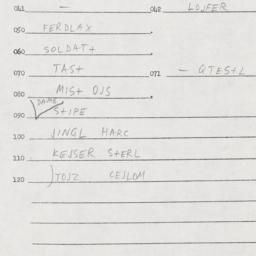 041 — 042 LOJFER
050 FERDLAX
060 SOLDAT+
070 TAS+ 071 — QTES+L
080 MIS+ OJS
DAJMS
090 S+IPE
100 JINGL HARC
110 KEJSER S+ERL
120 )TOJZ CEJLOM